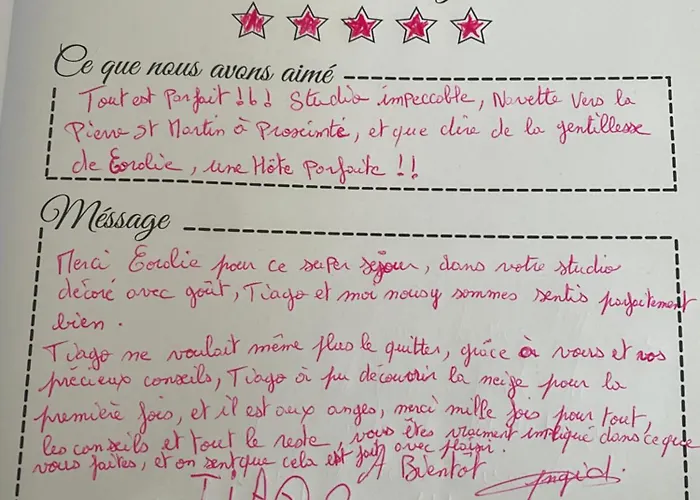 Ce que nous avons aimé
Tout est Parfait !!! Studio impeccable, Navette vers la
Pierre St Martin à Proximité, et que dire de la gentillesse
de Eorolie, une Hôte Parfaite !!
Méssage
Merci Eorolie pour ce super séjour, dans votre studio
décoré avec goût, Tiago et moi nous y sommes sentis parfaitement
bien.
Tiago ne voulait même plus le quitter, grâce à vous et vos
précieux conseils, Tiago à pu découvrir la neige pour la
première fois, et il est aux anges, merci mille fois pour tout,
les conseils et tout le reste, vous êtes vraiment impliqué dans ce que
vous faites, et on sent que cela est fait avec plaisir.
A Bientot Ingrid.
TIAGO